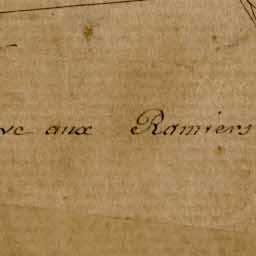 ve aux Ramiers